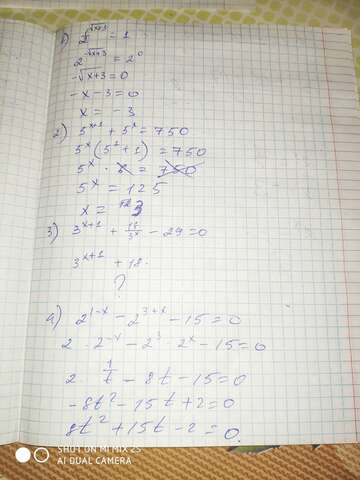 1) 2^{-√x+3} = 1
2^{-√x+3} = 2^0
-√x+3 = 0
-x-3=0
x = -3
2) 5^{x+1} + 5^x = 750
5^x (5^1 + 1) = 750
5^x · 6 = 750
5^x = 125
x = 3
3) 3^{x+1} + 18/3^x - 29 = 0
3^{x+1} + 18·
?
4) 2^{1-x} - 2^{3+x} - 15 = 0
2 · 2^{-x} - 2^3 · 2^x - 15 = 0
2 · 1/t - 8t - 15 = 0
-8t^2 - 15t + 2 = 0
8t^2 + 15t - 2 = 0.
SHOT ON MI MIX 2S
AI DUAL CAMERA